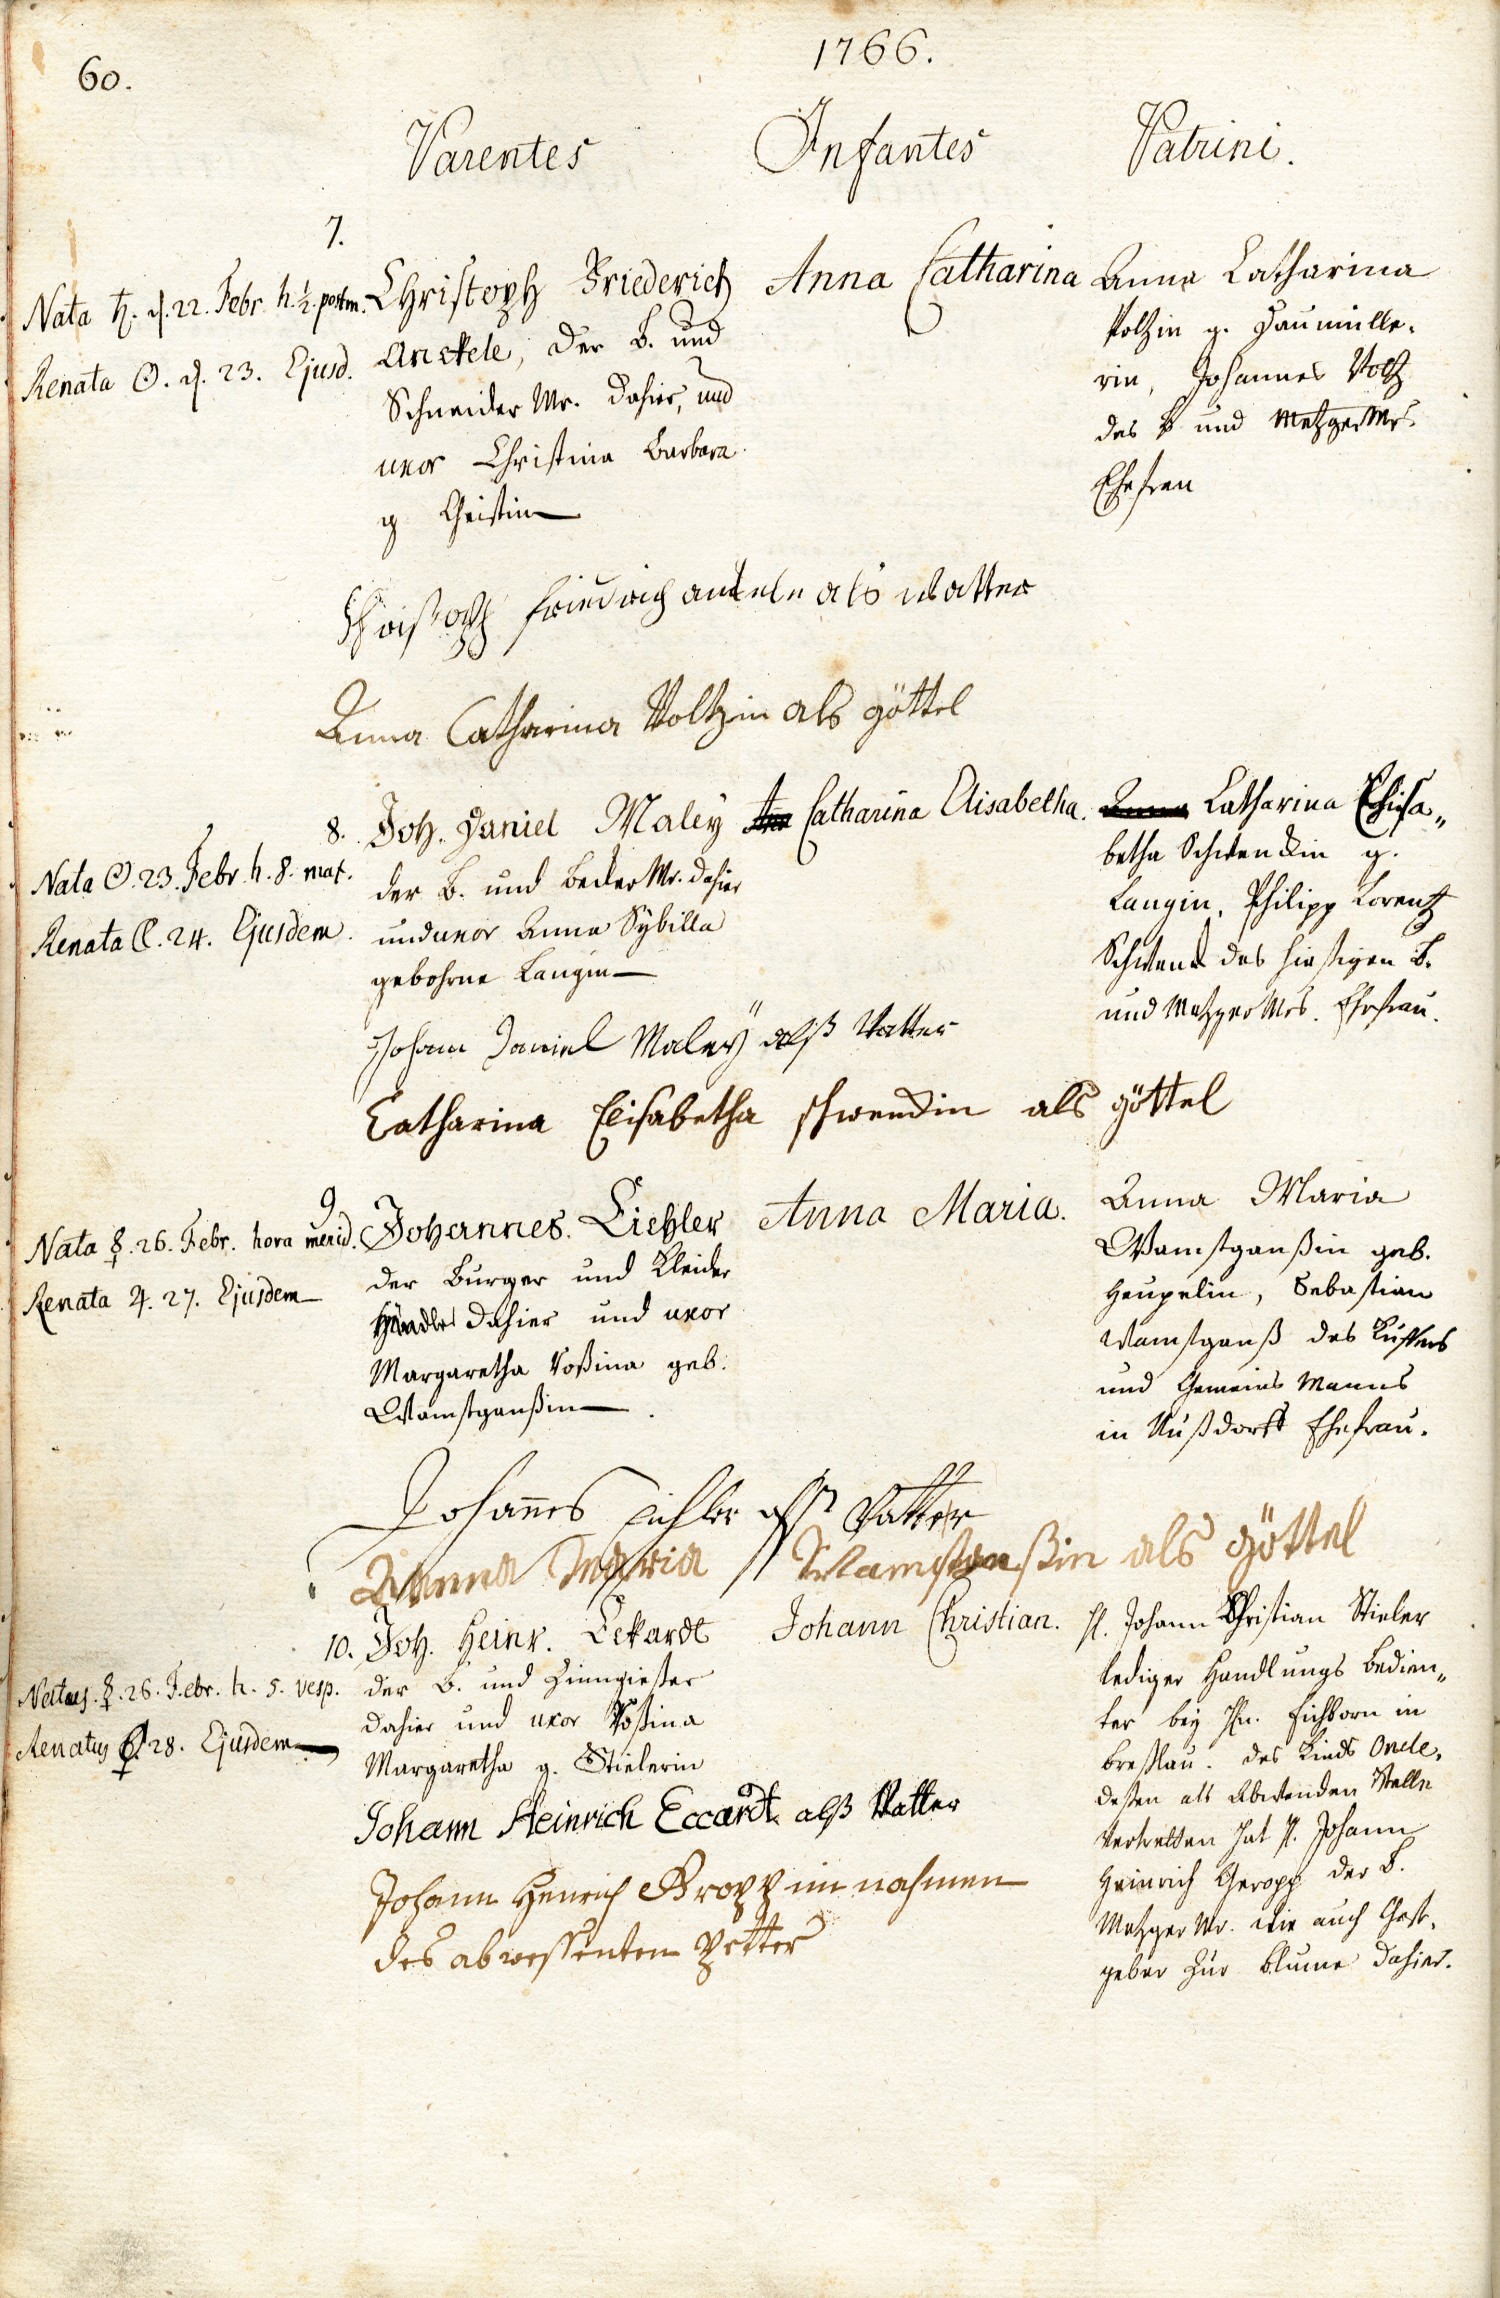 60.
1766.
Parentes Infantes Patrini.
7.
Nata ♄. d. 22. Febr. h. ½. postm.
Renata ☉. d. 23. Ejusd.
Christoph Friederich
Anckele, der B. und
Schneider Mr. dahier, und
uxor Christina Barbara
g. Geistin
Anna Catharina
Anna Catharina
Voltzin g. Haumülle-
rin, Johannes Voltz
des B und Metzger Mrs.
Ehefrau
Christoph Friedrich anckele als vatter
Anna Catharina Voltzin als göttel
8.
Nata ☉. 23. Febr. h. 8. mat.
Renata ☾. 24. Ejusdem.
Joh. Daniel Maley
der B. und Becker Mr. dahier
und uxor Anna Sybilla
gebohrne Langin
Catharina Elisabetha.
Catharina Elisa„
betha Schwenckin g.
Langin, Philipp Lorentz
Schwenck des hiesigen B.
und Metzger Mrs. Ehefrau.
Johann Daniel Maleÿ alß Vatter
Catharina Elisabetha schwenckin als göttel
9.
Nata ☿. 26. Febr. hora merid.
Renata ♃. 27. Ejusdem
Johannes Eichler
der Burger und Kleider
Händler dahier und uxor
Margaretha Rosina geb.
Wamstganßin
Anna Maria.
Anna Maria
Wamstganßin geb.
Heupelin, Sebastian
Wamstganß des Küffers
und Gemeins Manns
in Nußdorff Ehefrau.
Johannes Eichler alß Vatter
Anna Maria Wamstganßin als göttel
10.
Natus. ☿. 26. Febr. h. 5. vesp.
Renatus ♀. 28. Ejusdem
Joh. Heinr. Eckardt
der B. und Zinngießer
dahier und uxor Rosina
Margaretha g. Stielerin
Johann Christian.
H. Johann Christian Stieler
lediger Handlungs Bedien„
ter bey Hn. Eichborn in
Breßlau. des Kinds Oncle,
deßen als Abwesenden Stelle
Vertretten hat H. Johann
Heinrich Gropp der B.
Metzger Mr. wie auch Gast-
geber zur Blume dahier.
Johann Heinrich Eccardt. alß Vatter
Johann Henrich Gropp im nahmen
des abwessenten petter